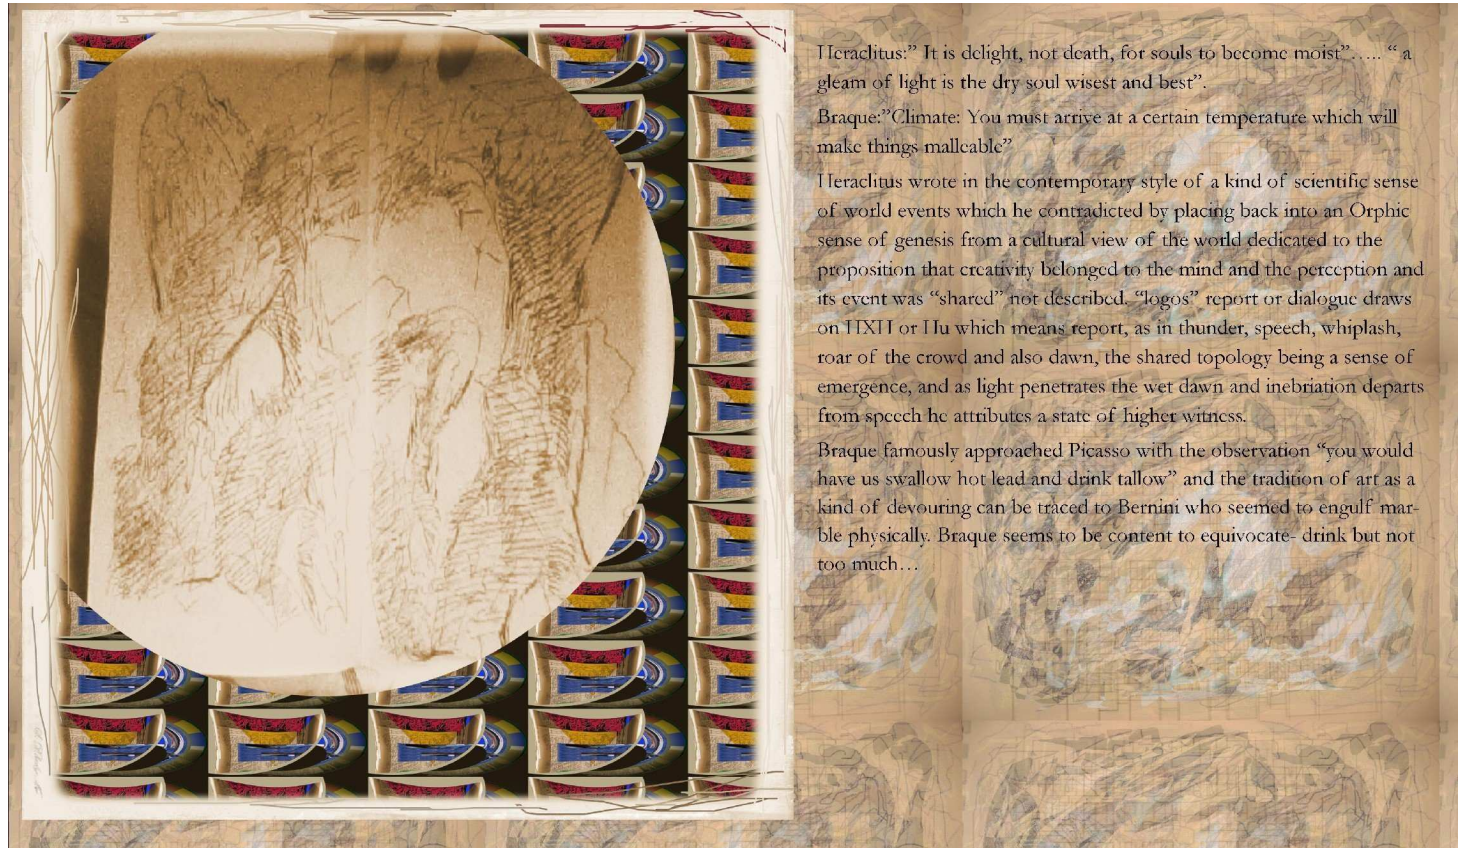 Heraclitus:” It is delight, not death, for souls to become moist”….. “ a
gleam of light is the dry soul wisest and best”.
Braque:”Climate: You must arrive at a certain temperature which will
make things malleable”
Heraclitus wrote in the contemporary style of a kind of scientific sense
of world events which he contradicted by placing back into an Orphic
sense of genesis from a cultural view of the world dedicated to the
proposition that creativity belonged to the mind and the perception and
its event was “shared” not described. “logos” report or dialogue draws
on HXH or Hu which means report, as in thunder, speech, whiplash,
roar of the crowd and also dawn, the shared topology being a sense of
emergence, and as light penetrates the wet dawn and inebriation departs
from speech he attributes a state of higher witness.
Braque famously approached Picasso with the observation “you would
have us swallow hot lead and drink tallow” and the tradition of art as a
kind of devouring can be traced to Bernini who seemed to engulf mar-
ble physically. Braque seems to be content to equivocate- drink but not
too much…